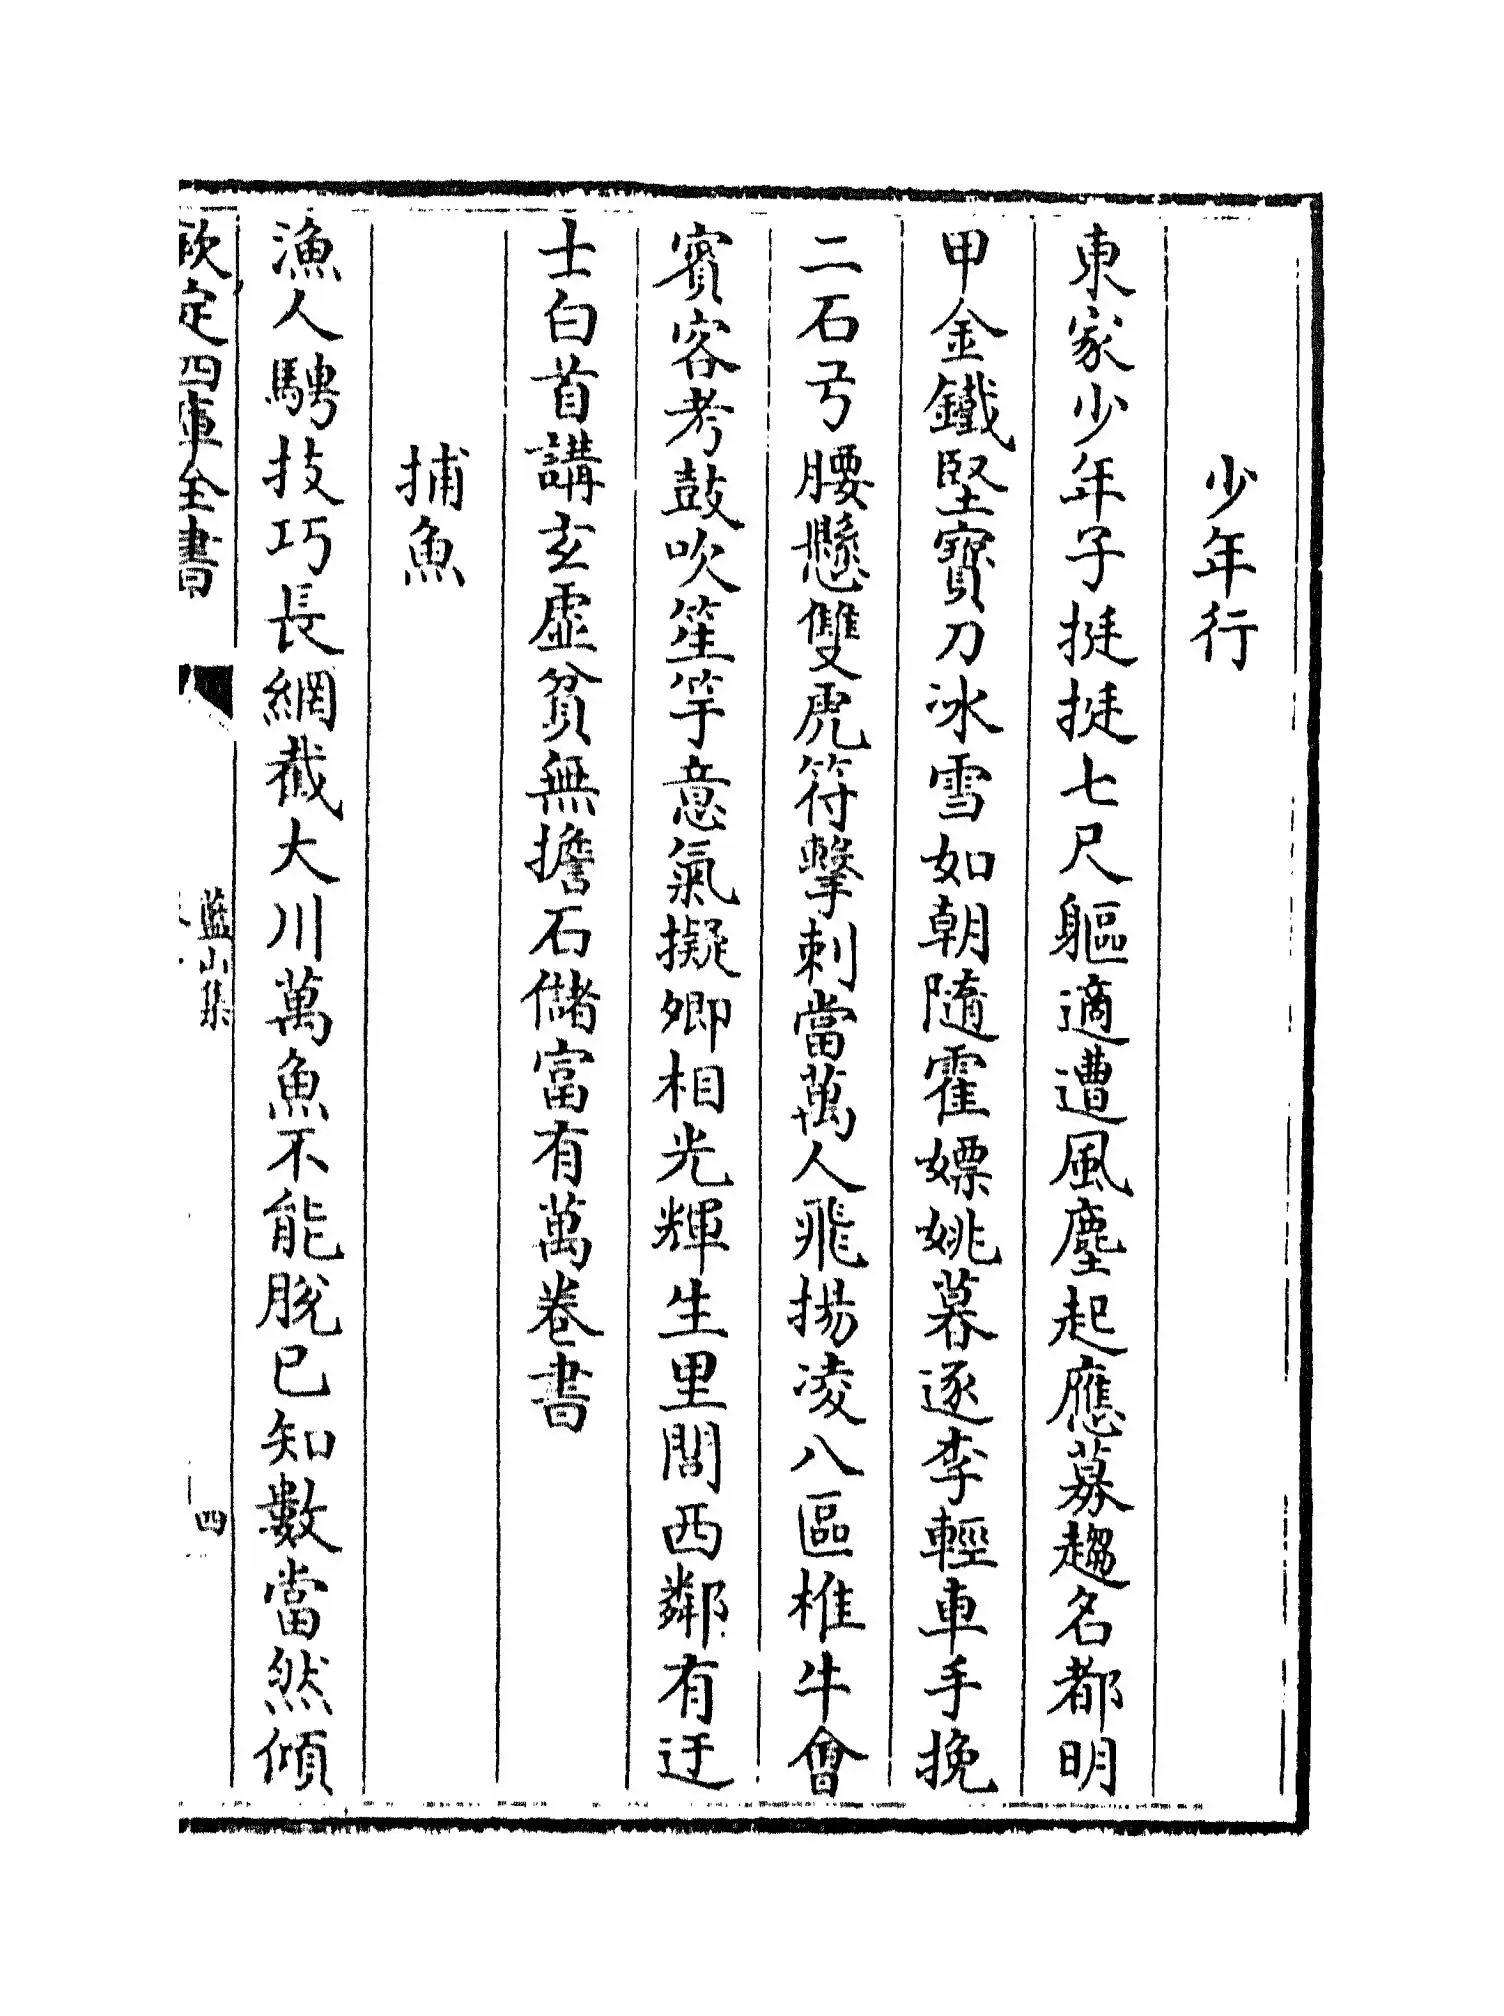 少年行
東家少年子挺挺七尺軀適遭風塵起應募趨名都明
甲金鐵堅寶刀冰雪如朝隨霍嫖姚暮逐李輕車手挽
二石弓腰懸雙虎符擊刺當萬人飛揚凌八區椎牛會
賓客考鼓吹笙竽意氣擬卿相光輝生里閭西鄰有迂
士白首講玄虛貧無擔石儲富有萬卷書
捕魚
漁人騁技巧長網截大川萬魚不能脫已知數當然傾
欽定四庫全書
藍山集
四